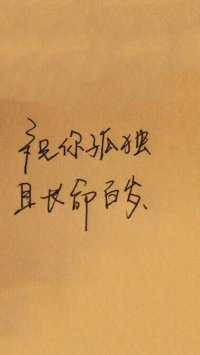 祝你孤独
且长命百岁、